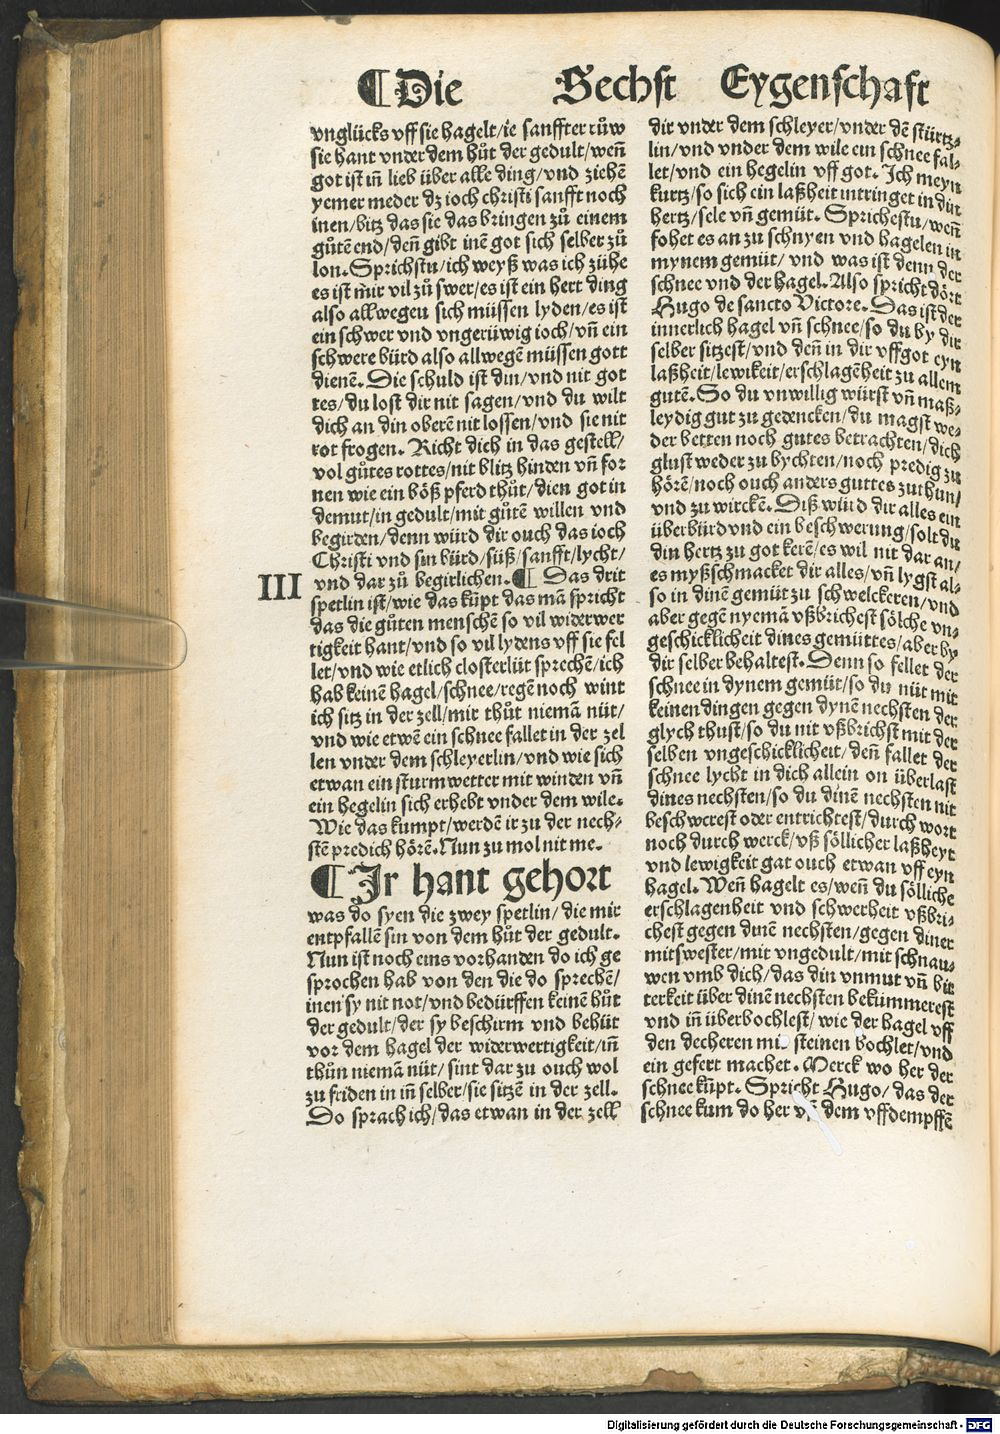 ¶ Die Sechst Eygenschafft
vnglücks vff sie hagelt/ ie sanffter růw
sie hant vnder dem hůt der gedult/ weñ
got ist iñ lieb über alle ding/ vnd ziehẽ
yemer meder dz ioch christi sanfft noch
inen/ bitz das sie das bringen zů einem
gůtẽ end/ deñ gibt inẽ got sich selber zů
lon. Sprichstu/ ich weyß was ich zühe
es ist mir vil zů swer/ es ist ein hert ding
also allwegen sich müssen lyden/ es ist
ein schwer vnd vngerüwig ioch/ vñ ein
schwere bürd also allwegẽ müssen gott
dienẽ. Die schuld ist din/ vnd nit got
tes/ du lost dir nit sagen/ vnd du wilt
dich an din oberẽ nit lossen/ vnd sie nit
rot frogen. Richt dich in das gestell/
vol gůtes rottes/ nit blitz hinden vñ for
nen wie ein böß pferd thůt/ dien got in
demut/ in gedult/ mit gůtẽ willen vnd
begirden/ denn würd dir ouch das ioch
Christi vnd sin bürd/ süß/ sanfft/ lycht/
vnd dar zů begirlichen. ¶ Das drit
III
spetlin ist/ wie das kũpt das mã spricht
das die gůten menschẽ so vil widerwer
tigkeit hant/ vnd so vil lydens vff sie fel
let/ vnd wie etlich closterlüt sprechẽ/ ich
hab keinẽ hagel/ schnee/ regẽ noch wint
ich sitz in der zell/ mir thůt niemã nüt/
vnd wie etwẽ ein schnee fallet in der zel
len vnder dem schleyerlin/ vnd wie sich
etwan ein sturmwetter mit winden vñ
ein hegelin sich erhebt vnder dem wile.
Wie das kumpt/ werdẽ ir zu der nech-
stẽ predich hörẽ. Nun zu mol nit me.
¶ Ir hant gehort
was do syen die zwey spetlin/ die mir
entpfallẽ sin von dem hůt der gedult.
Nun ist noch eins vorhanden do ich ge
sprochen hab von den die do sprechẽ/
inen sy nit not/ vnd bedürffen keinẽ hůt
der gedult/ der sy beschirm vnd behüt
vor dem hagel der widerwertigkeit/ iñ
thůn niemã nüt/ sint dar zu ouch wol
zu friden in iñ selber/ sie sitzẽ in der zell.
Do sprach ich/ das etwan in der zell
dir vnder dem schleyer/ vnder dẽ stürtz-
lin/ vnd vnder dem wile ein schnee fal-
let/ vnd ein hegelin vff got. Ich meyn
kurtz/ so sich ein laßheit intringet in din
hertz/ sele vñ gemüt. Sprichestu/ weñ
fohet es an zu schnyen vnd hagelen in
mynem gemüt/ vnd was ist denn der
schnee vnd der hagel. Also spricht dört
Hugo de sancto Victore. Das ist der
innerlich hagel vñ schnee/ so du by dir
selber sitzest/ vnd deñ in dir vffgot eyn
laßheit/ lewikeit/ erschlagẽheit zu allem
gutẽ. So du vnwillig würst vñ maß-
leydig gut zu gedencken/ du magst we-
der betten noch gutes betrachten/ dich
glust weder zu bychten/ noch predig zu
hörẽ/ noch ouch anders guttes zuthun/
vnd zu wirckẽ. Diß würd dir alles ein
überbürd vnd ein beschwerung/ solt du
din hertz zu got kerẽ/ es wil nit dar an/
es myßschmacket dir alles/ vñ lygst al-
so in dinẽ gemüt zu schwelckeren/ vnd
aber gegẽ nyemã vßbrichest sölche vn-
geschicklicheit dines gemüttes/ aber by
dir selber behaltest. Denn so fellet der
schnee in dynem gemüt/ so du nüt mit
keinen dingen gegen dynẽ nechsten der
glych thust/ so du nit vßbrichst mit der
selben vngeschicklicheit/ deñ fallet der
schnee lycht in dich allein on überlast
dines nechsten/ so du dinẽ nechsten nit
beschwerest oder entrichtest/ durch wort
noch durch werck/ vß söllicher laßheyt
vnd lewigkeit gat ouch etwan vff eyn
hagel. Weñ hagelt es/ weñ du sölliche
erschlagenheit vnd schwerheit vßbri-
chest gegen dinẽ nechsten/ gegen diner
mitswester/ mit vngedult/ mit schnau-
wen vmb dich/ das din vnmut vñ bit
terkeit über dinẽ nechsten bekümmerest
vnd iñ überbochlest/ wie der hagel vff
den decheren mit steinen bochlet/ vnd
ein gefert machet. Merck wo her der
schnee kũpt. Spricht Hugo/ das der
schnee kum do her vñ dem vffdempffẽ
Digitalisierung gefördert durch die Deutsche Forschungsgemeinschaft - DFG